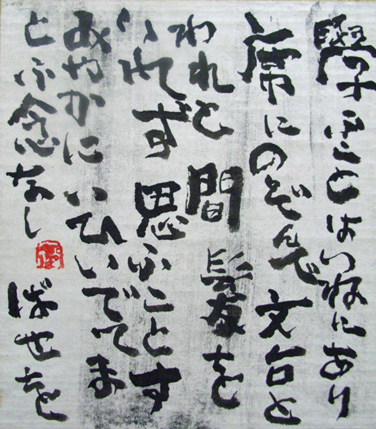 學ふことはつねにあり
席にのぞんで文台と
われと間髪を
いれず思ふことす
みやかにいひいでてま
とふ念なし ばせを